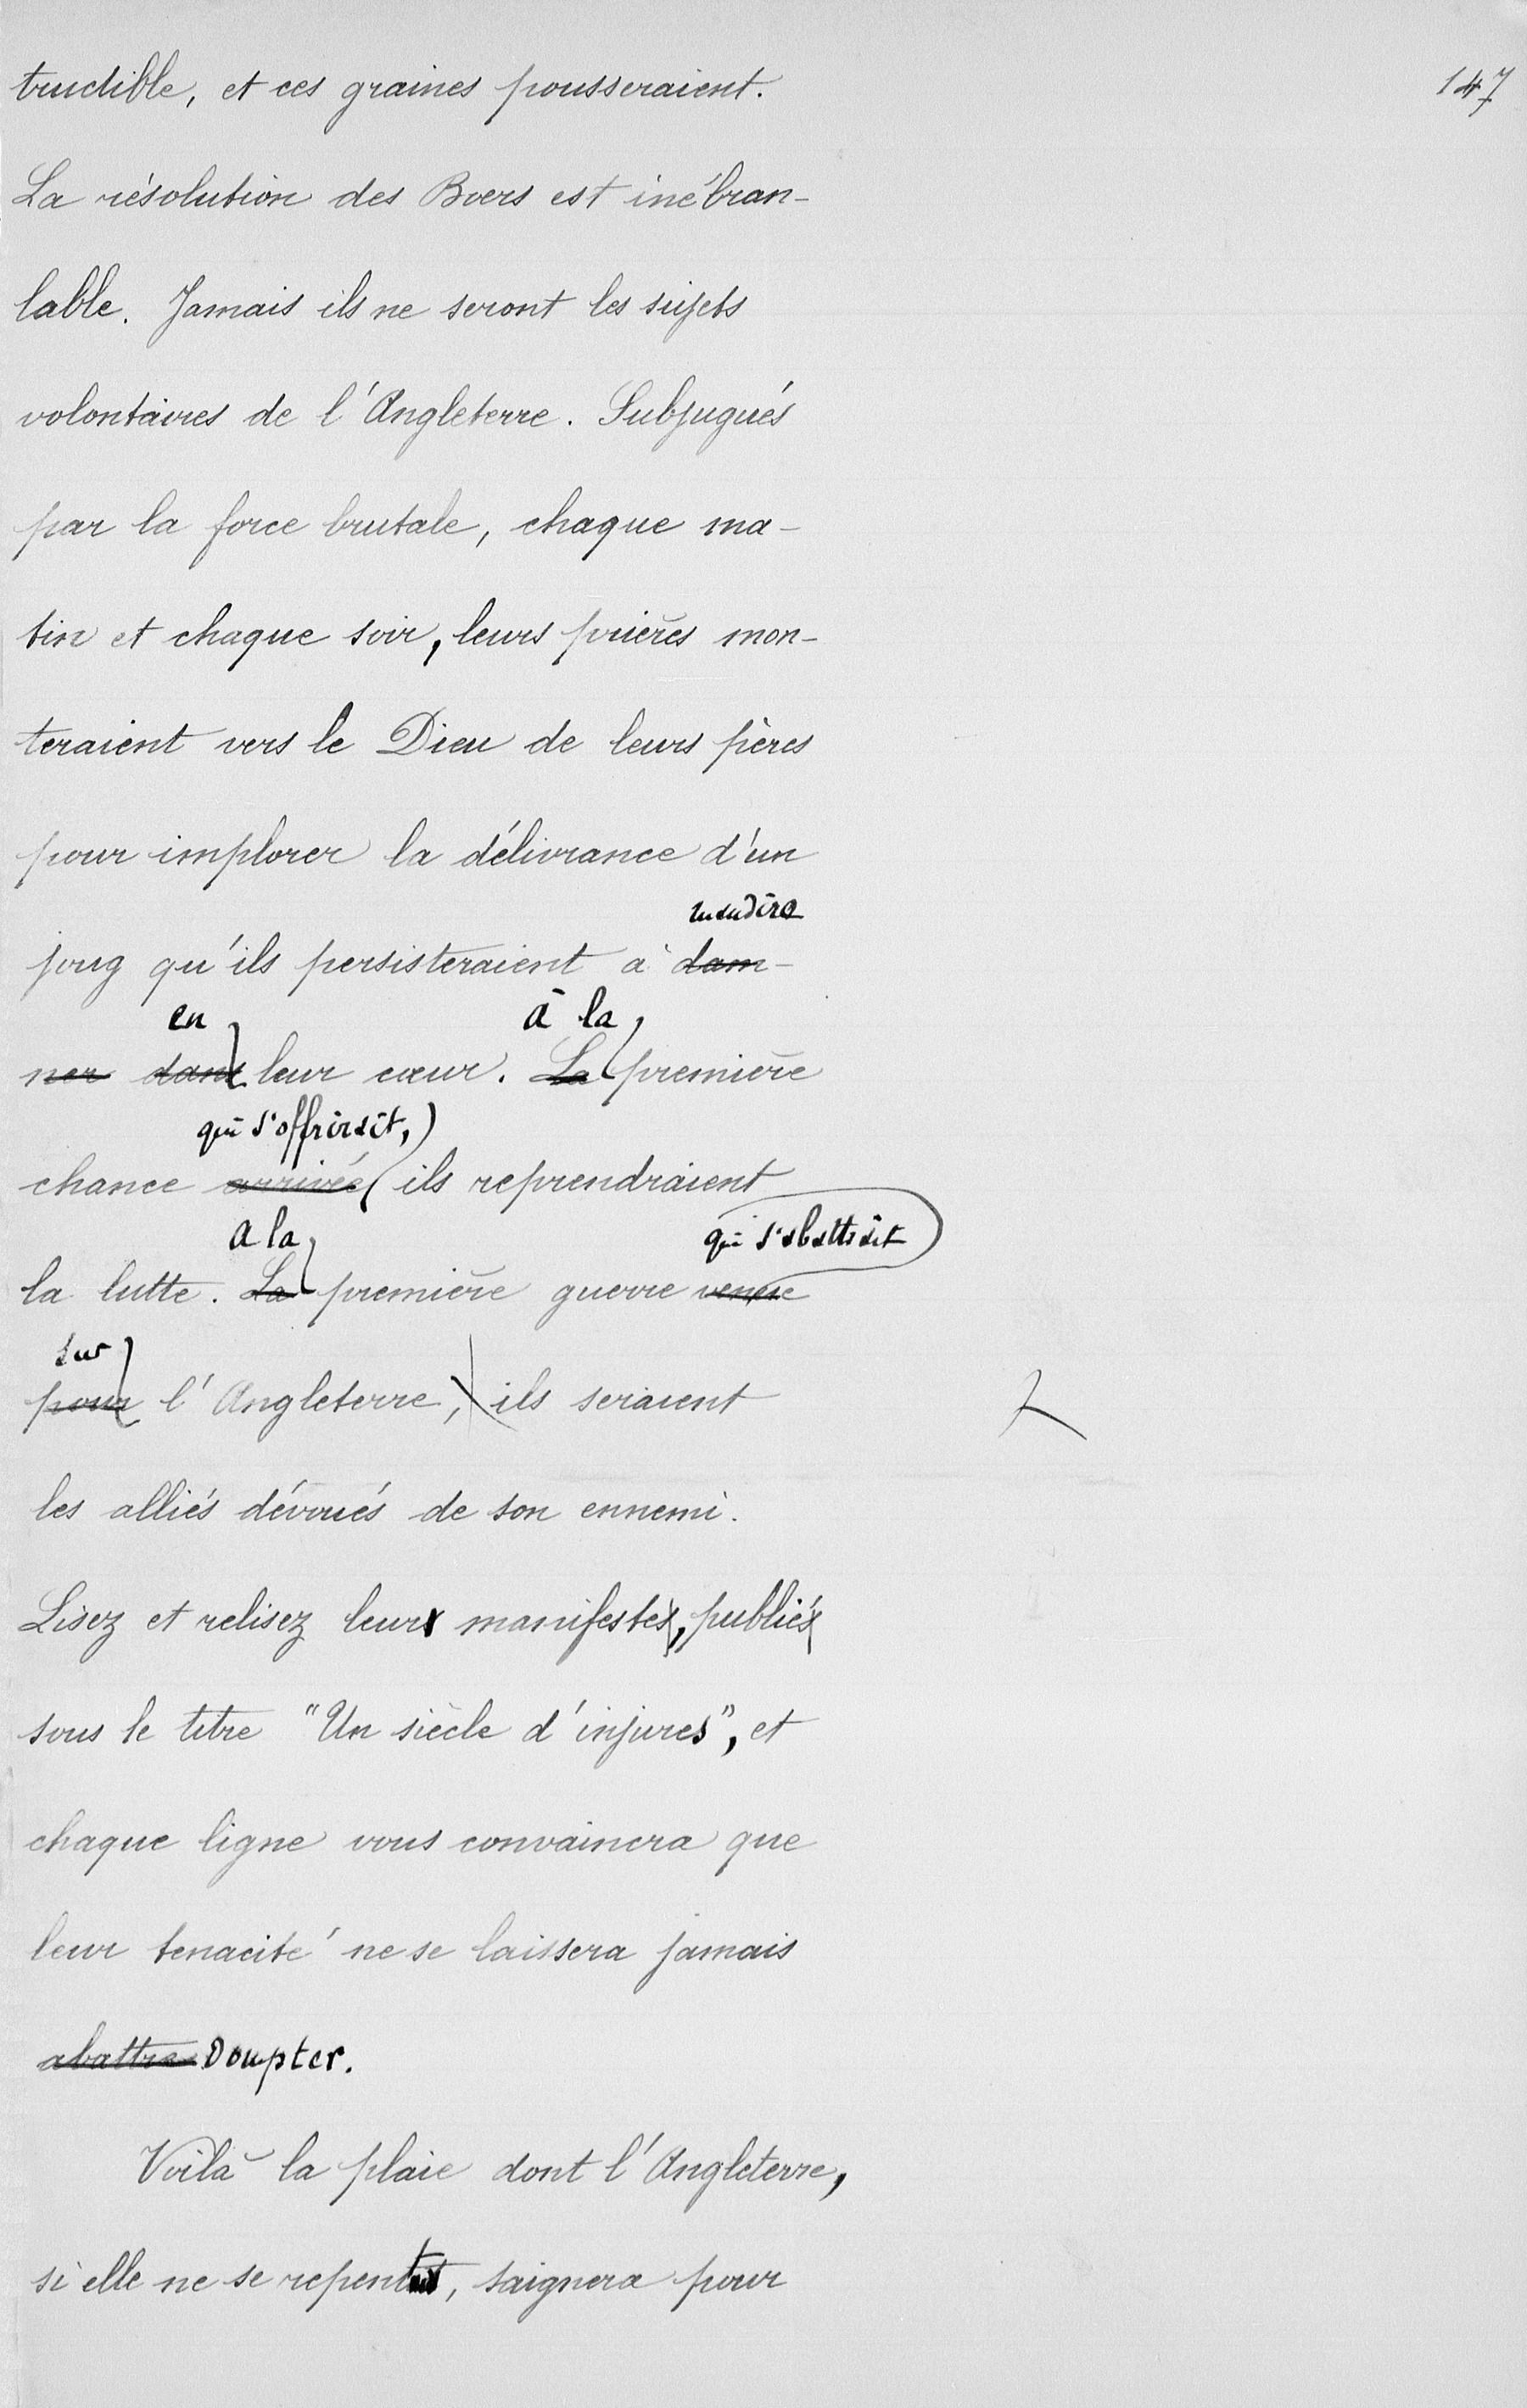 147
tructible, et ces graines pousseraient.
La résolution des Boers est inébran-
lable. Jamais ils ne seront les sujets
volontaires de l'Angleterre. Subjugués
par la force brutale, chaque ma-
tin et chaque soir, leurs prières mon-
teraient vers le Dieu de leurs pères
pour implorer la délivrance d'un
maudire
joug qu'ils persisteraient à dam-
en à la
ner dans leur cœur. La première
qui s'offrirait,
chance arrivée ils reprendraient
a la qui s'abattrait
la lutte. La première guerre venue
sur
pour l'Angleterre, ils seraient
les alliés dévoués de son ennemi.
Lisez et relisez leurs manifestes, publiés
sous le titre "Un siècle d'injures", et
chaque ligne vous convaincra que
leur tenacité ne se laissera jamais
abattre Dompter.
Voilà la plaie dont l'Angleterre,
si elle ne se repent, saignera pour